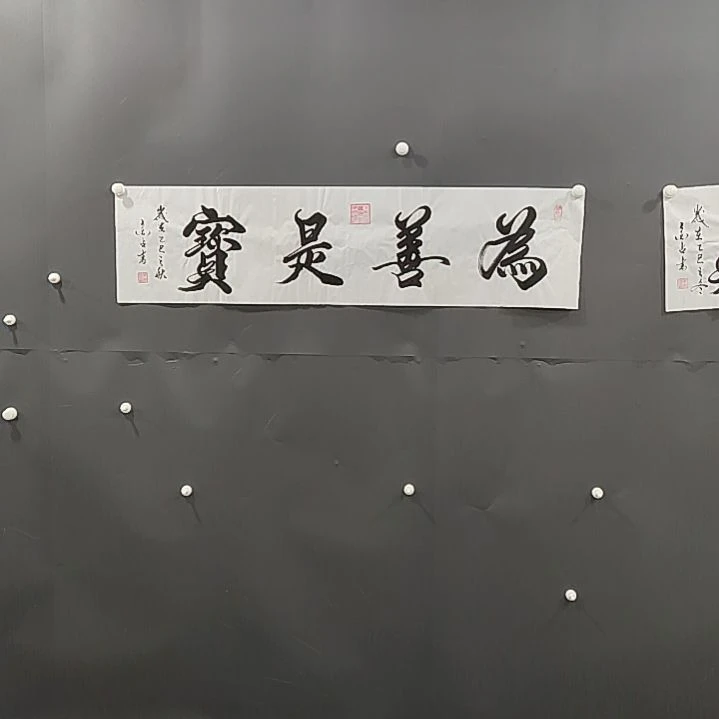 為善是寶
歲在乙巳之秋
書
歲在乙巳之冬
書